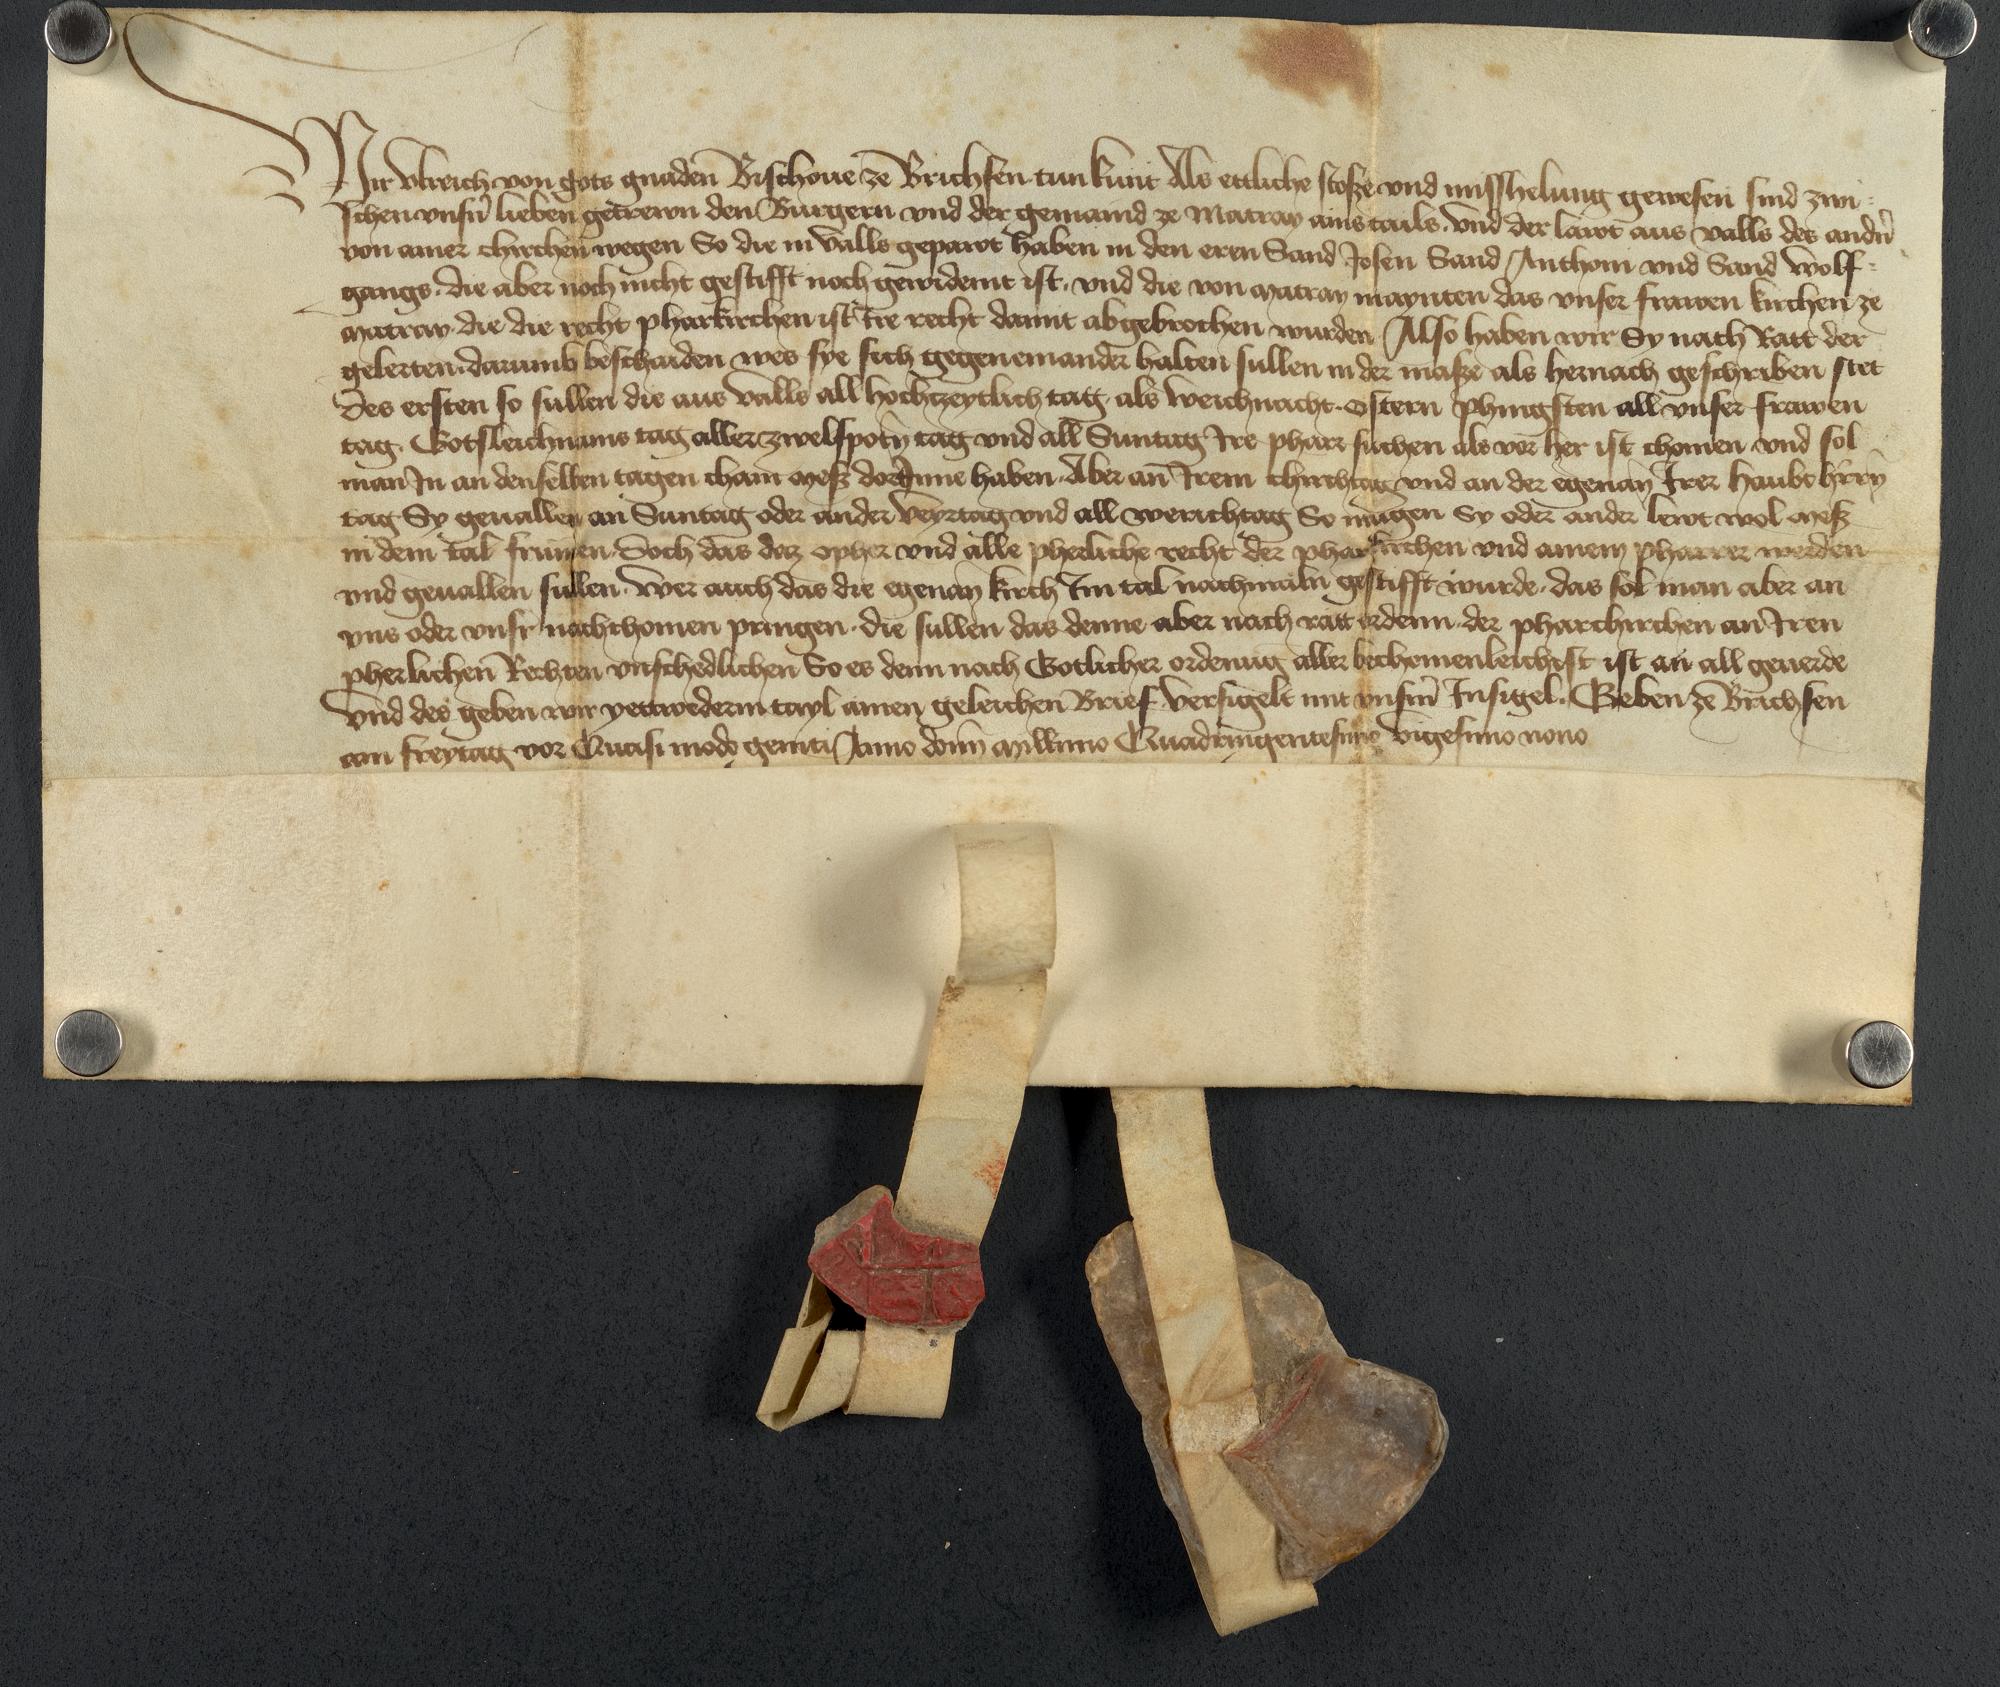 Wir Ulreich von gots gnaden Bischoue ze Brichsen tun kunt Als ettliche stosze vnd misshelung gewesen sind zwi=
schen vnsern lieben getrewn den Burgern vnd der gemaind ze Matray ains tails. vnd der lawt aus Valls des andern
von ainer chirchen wegen So die in Valls gepawt haben in den eren Sand Josen Sand Anthoni vnd Sand Wolf=
gangs. die aber noch nicht gestifft noch gewidemt ist. vnd die von Matray maynten das vnser frawen kirchen ze
Matray. die die recht pharkirchen ist Ire recht damit abgebrochen wurden Also haben wir Sy nach Ratt der
gelerten. darumb beschaiden wes sye sich gegeneinander halten sullen in der masze als hernach geschriben stet
Des ersten so sullen die aus Valls all hochtzeytlich tag. als Weichnacht. Ostern Phingsten all vnser frawen
tag. Gotsleichnams tag aller zwelfpotn tag vnd all Suntag Ire pharr suchen als vor her ist chomen vnd sol
man In an denselben tagen chain Mesz dorInne haben. Aber an Irem chirchtag vnd an der egenanten Irer haubt herrn
tag Sy geuallen an Suntag oder ander Veyrtag vnd all werichtag So mugen Sy oder ander lewt wol Mesz
in dem tal frumen. Doch das daz opher vnd alle pherliche recht der pharkirchen vnd ainem pharrer werden
vnd geuallen sullen. Wer auch das die egenant kirch Im tal nachmaln gestifft wurde. das sol man aber an
vns oder vnser nachchomen pringen. die sullen das denne aber nach ratt ordenn. der pharchirchen an Iren
pherlichen Rechten vnschedlichen So es denn nach Gotlicher ordenung aller bechomenleichist ist an all geuerde
Vnd des geben wir yettwederm tayl ainen geleichen Brief. Versigelt mit vnserm Insigel. Geben ze Brichsen
am freytag vor Quasi modo geniti Anno domini Millimo Quadringentesimo vigesimo nono